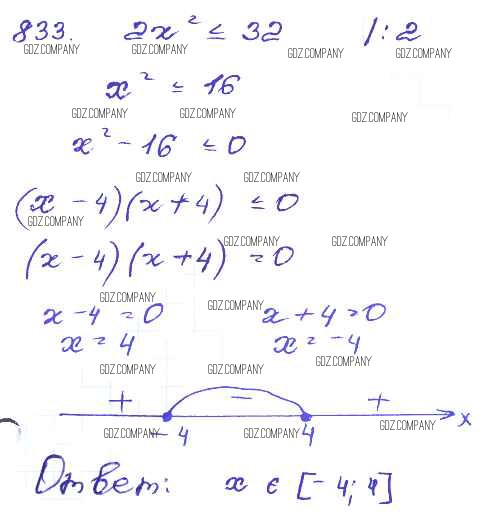 833. 2x² ≤ 32 /: 2
GDZ.COMPANY GDZ.COMPANY GDZ.COMPANY GDZ.COMPANY
x² ≤ 16
GDZ.COMPANY GDZ.COMPANY GDZ.COMPANY
x² - 16 ≤ 0
GDZ.COMPANY GDZ.COMPANY
(x - 4)(x + 4) ≤ 0
GDZ.COMPANY
GDZ.COMPANY GDZ.COMPANY
(x - 4)(x + 4) = 0
GDZ.COMPANY GDZ.COMPANY
x - 4 = 0 x + 4 = 0
x = 4 x = -4
GDZ.COMPANY GDZ.COMPANY GDZ.COMPANY
+ - +
x
GDZ.COMPANY GDZ.COMPANY GDZ.COMPANY
-4 4
Ответ: x ∈ [-4; 4]